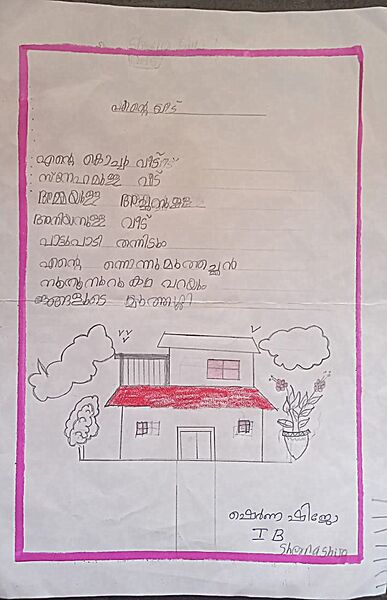 എന്റെ വീട്
എന്റെ കൊച്ചു വീട്
സ്നേഹമുള്ള വീട്
അമ്മയുള്ള അച്ഛനുള്ള
അനിയനുള്ള വീട്
പാട്ടുപാടി തന്നിടും
എന്റെ മുത്തച്ഛൻ
കഥ പറയും
ഞങ്ങളുടെ മുത്തശ്ശി
ഷെർന ഷിജോ
I B
Sherna shijo